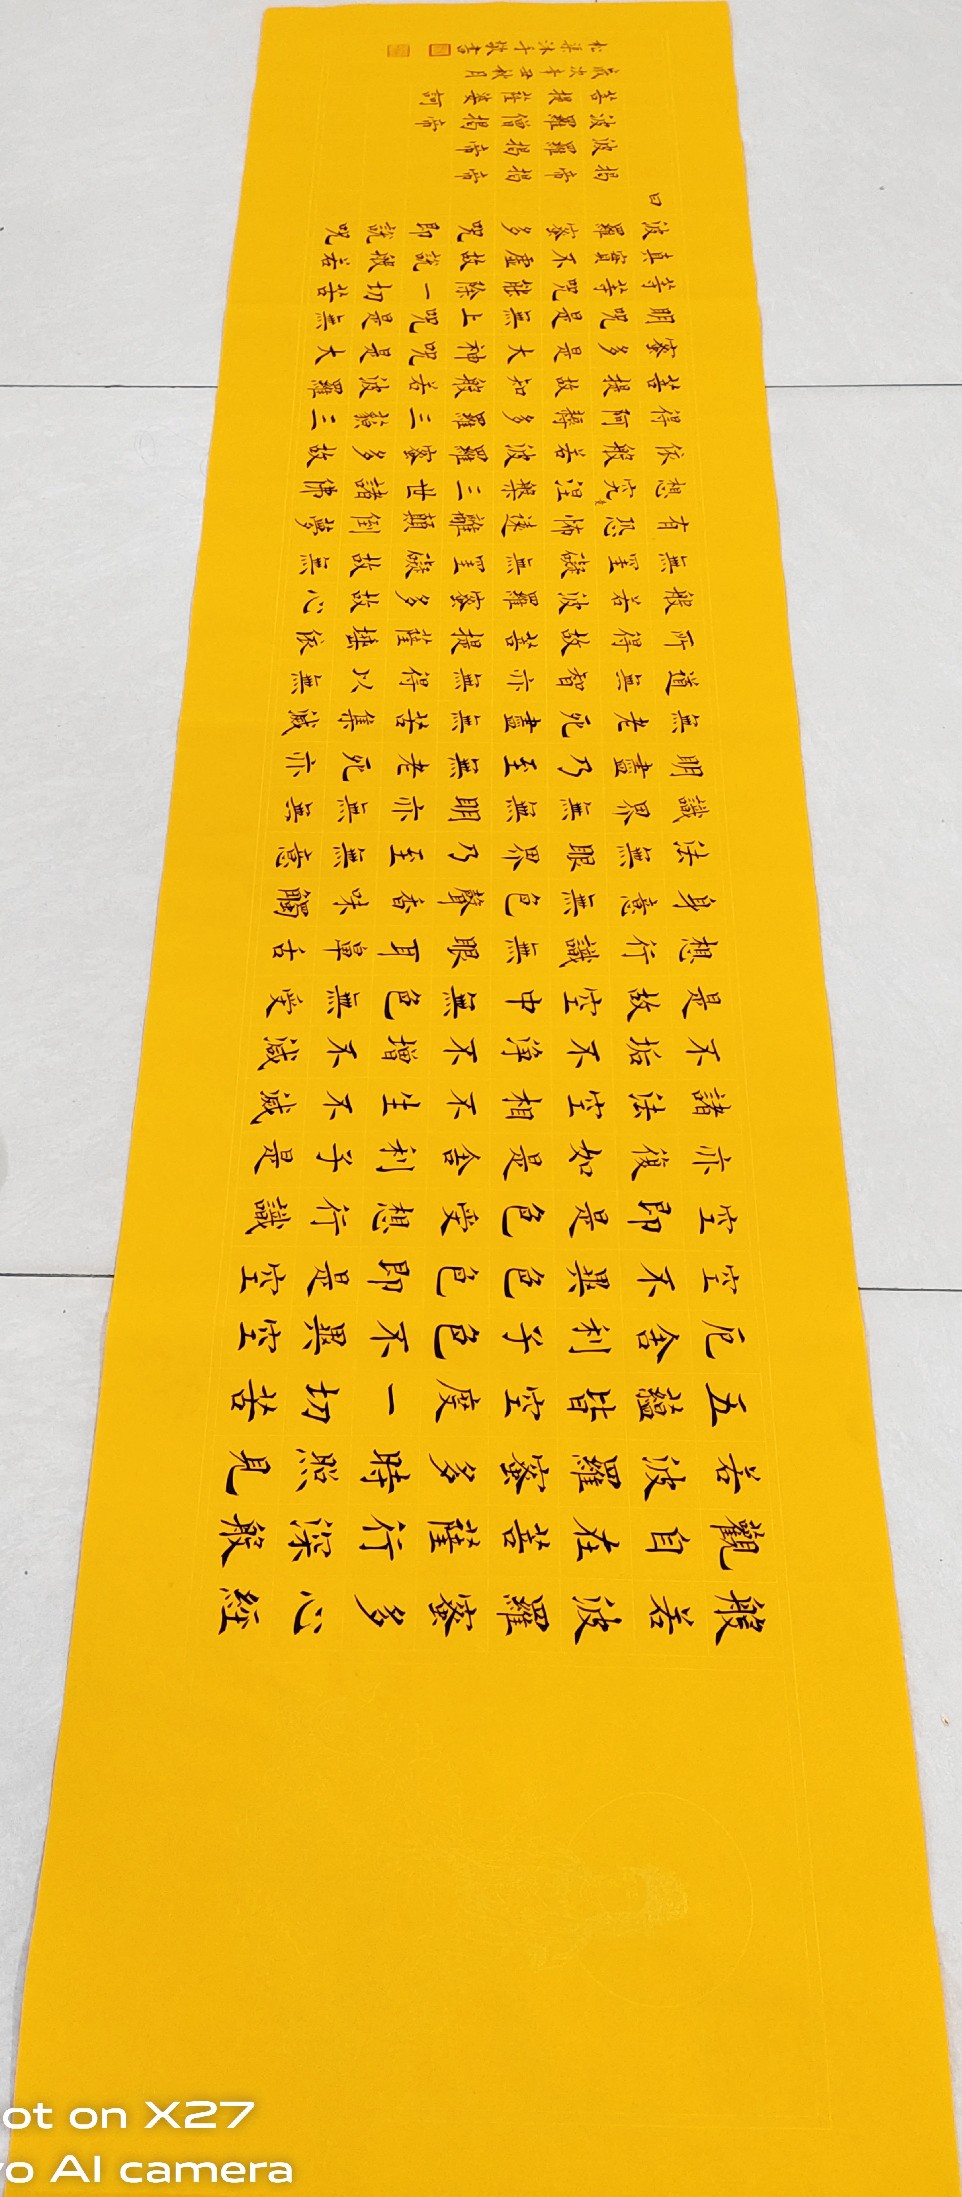 般若波羅蜜多心經
觀自在菩薩行深般
若波羅蜜多時照見
五蘊皆空度一切苦
厄舍利子色不異空
空不異色色即是空
空即是色受想行識
亦復如是舍利子是
諸法空相不生不滅
不垢不淨不增不減
是故空中無色無受
想行識無眼耳鼻舌
身意無色聲香味觸
法無眼界乃至無意
識界無無明亦無無
明盡乃至無老死亦
無老死盡無苦集滅
道無智亦無得以無
所得故菩提薩埵依
般若波羅蜜多故心
無罣礙無罣礙故無
有恐怖遠離顛倒夢
想究竟涅槃三世諸佛
依般若波羅蜜多故
得阿耨多羅三藐三
菩提故知般若波羅
蜜多是大神咒是大
明咒是無上咒是無
等等咒能除一切苦
真實不虛故說般若
波羅蜜多咒即說咒
曰
揭帝揭帝
波羅揭帝
波羅僧揭帝
菩提薩婆訶
歲次辛丑秋月
松沐手敬書
ot on X27
vo AI camera